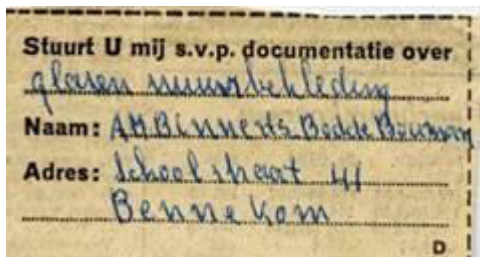 Stuurt U mij s.v.p. documentatie over
glasen muurbekleding
Naam: AMBinnerts Bodde Bouman
Adres: Schoolstraat 41
Bennekom
D